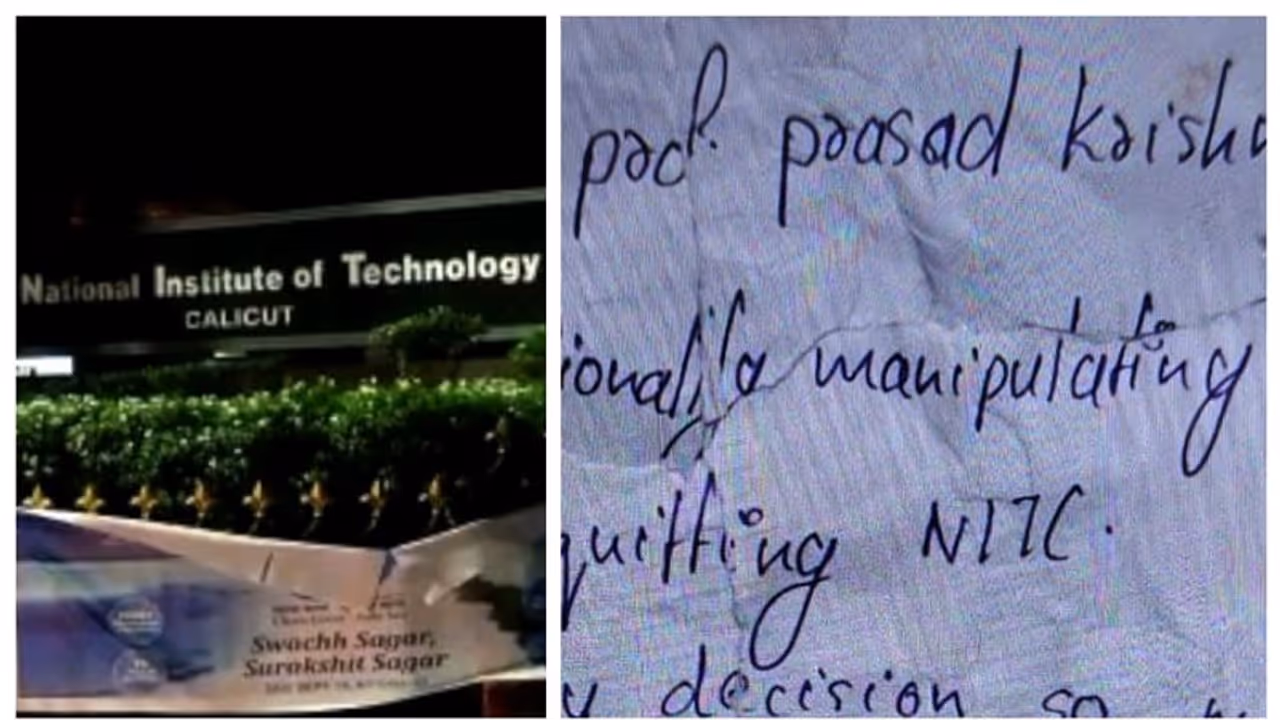 National Institute of Technology
CALICUT
Swachh Sagar,
Surakshit Sagar
prof. prasad krishn
ionally manipulating
quitting NITC.
y decision so